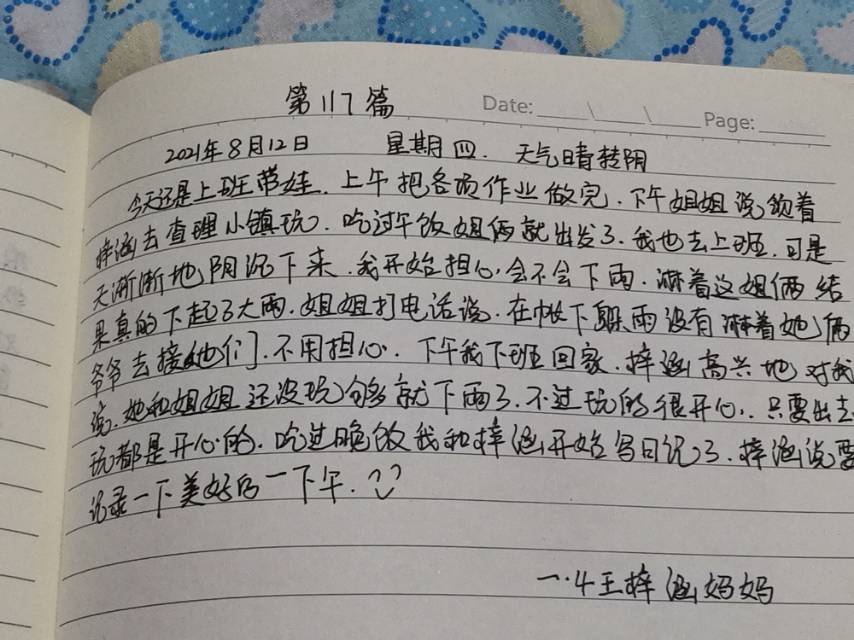 第117篇
Date: \ \ Page:
2021年8月12日 星期四. 天气晴转阴
今天还是上班带娃. 上午把各项作业做完. 下午姐姐说领着
梓涵去查理小镇玩. 吃过午饭姐俩就出发了. 我也去上班. 可是
天渐渐地阴沉下来. 我开始担心会不会下雨. 淋着这姐俩 结
果真的下起了大雨. 姐姐打电话说. 在帐下躲雨没有淋着她俩
爷爷去接她们. 不用担心. 下午我下班回家. 梓涵高兴地对我
说. 她和姐姐还没玩够就下雨了. 不过玩的很开心. 只要出去
玩都是开心的. 吃过晚饭我和梓涵开始写日记了. 梓涵说要
记录一下美好的一下午.
一.4王梓涵妈妈